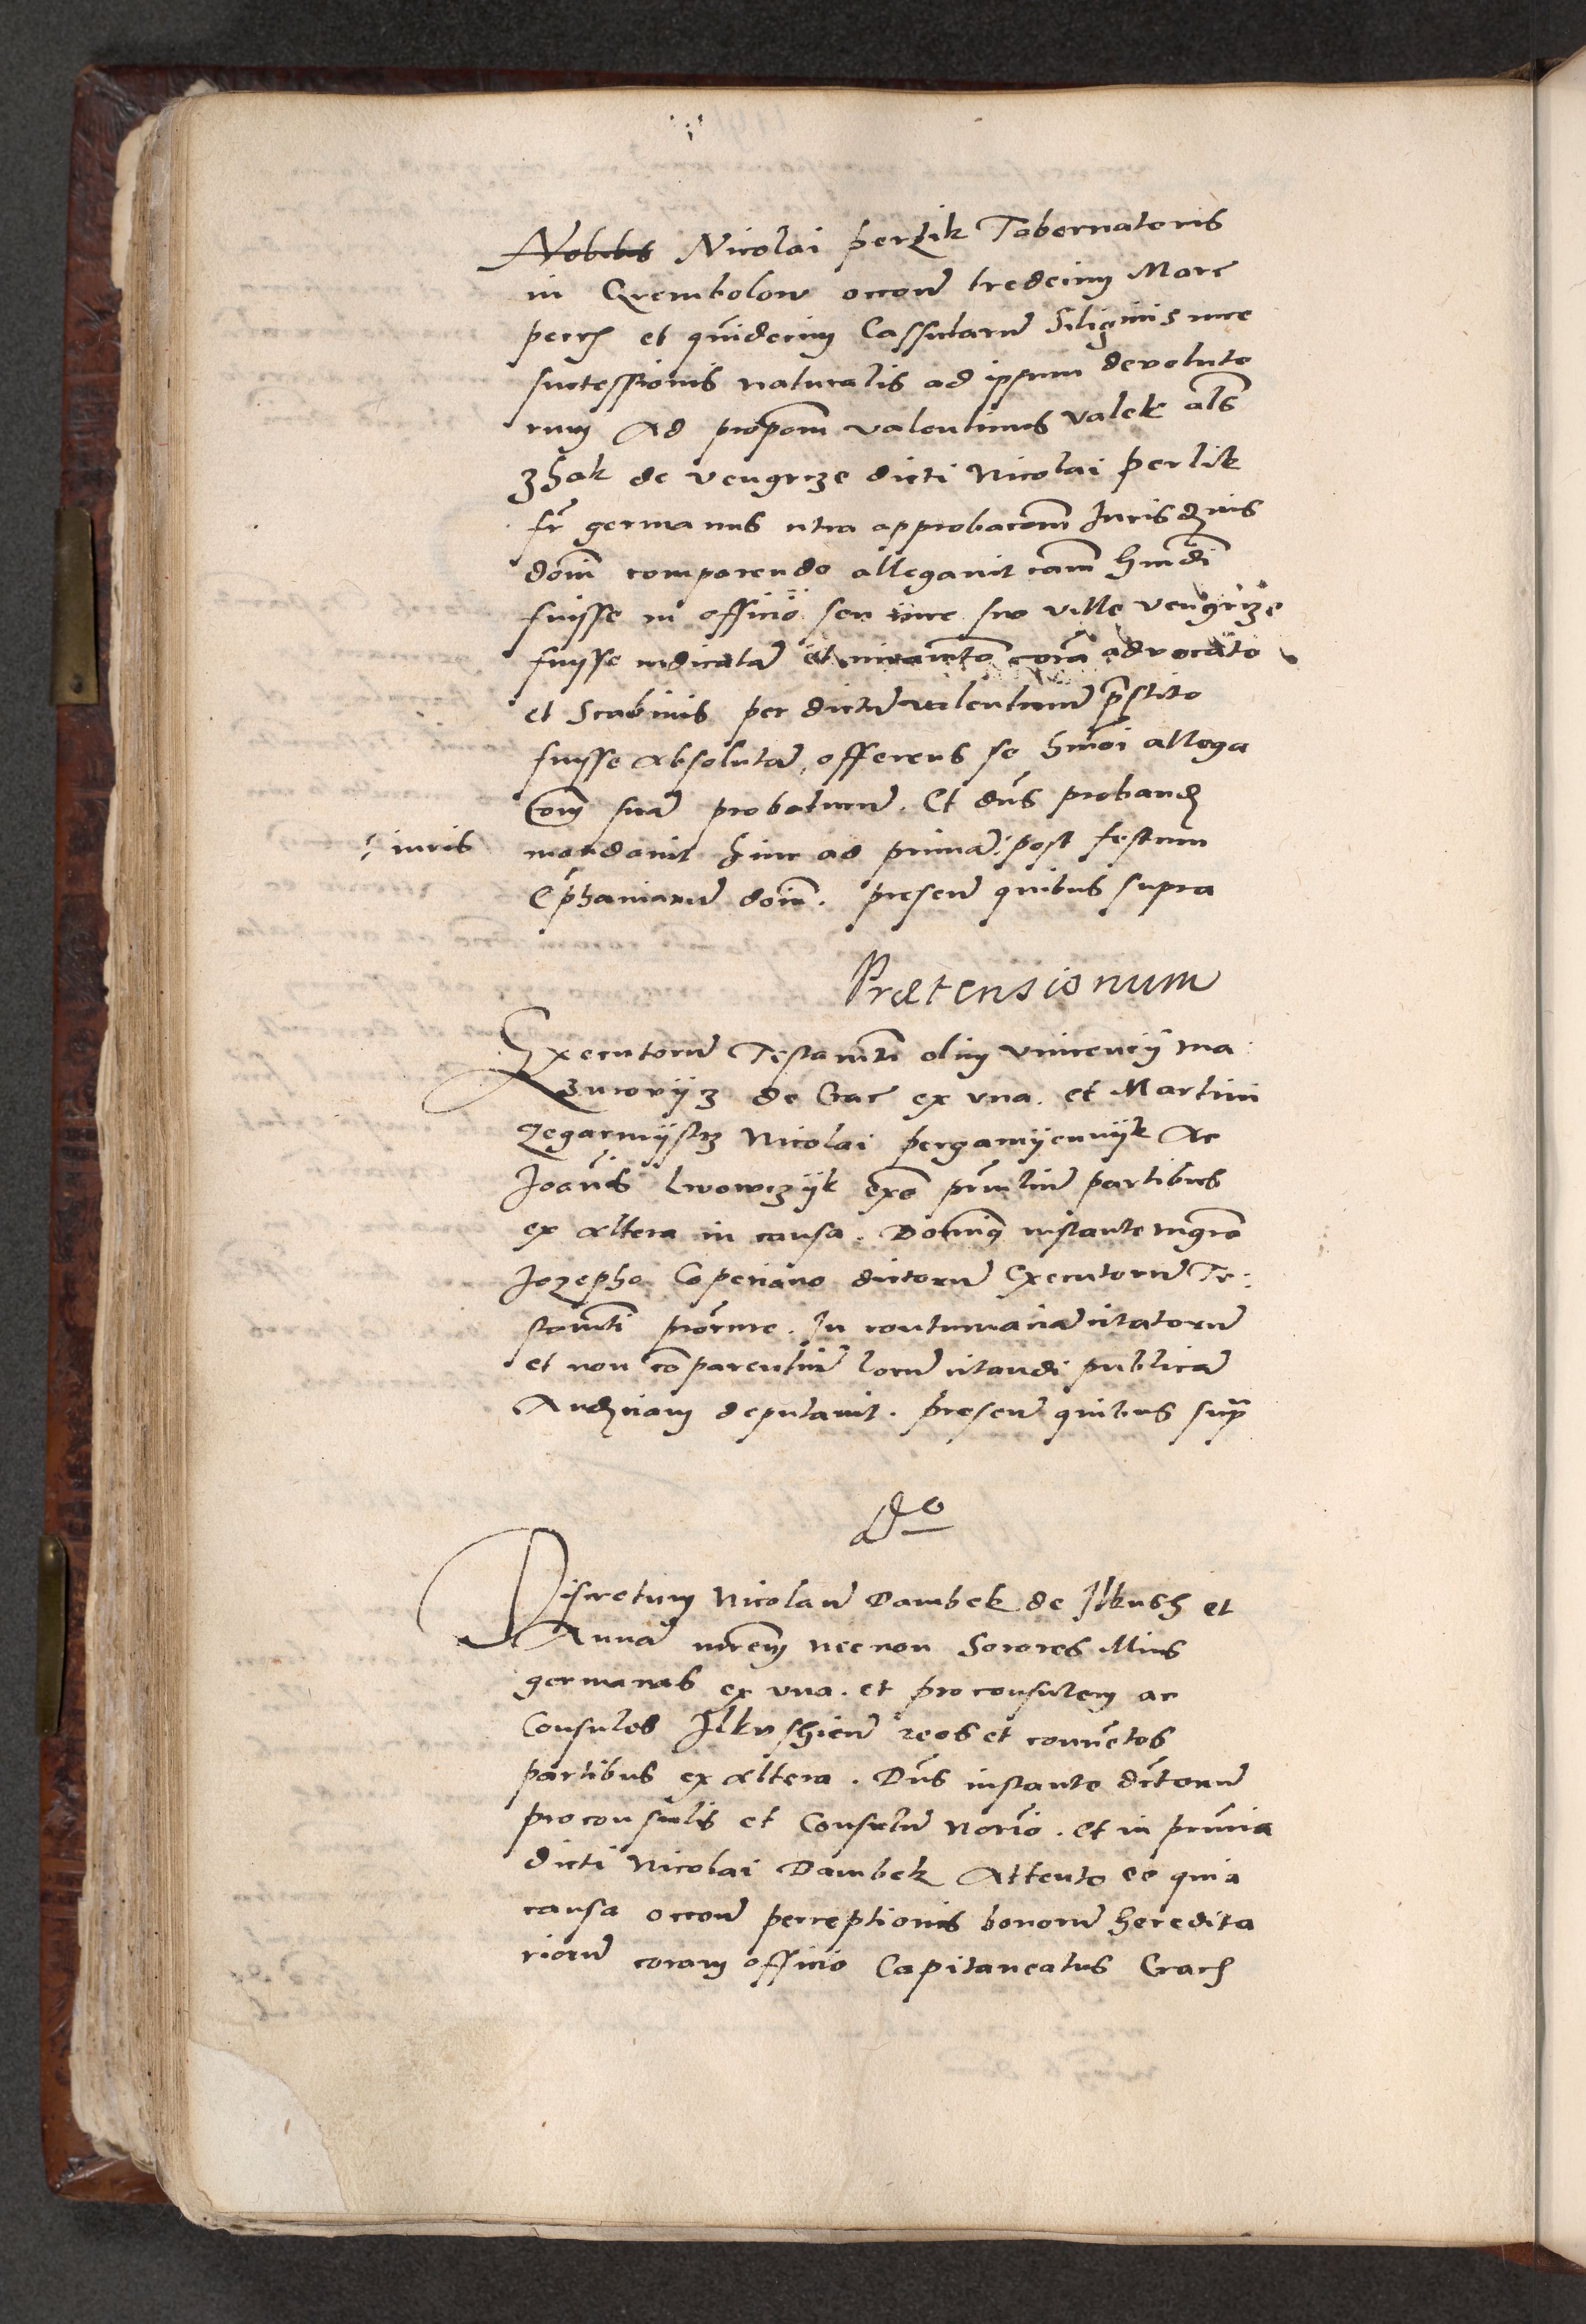 Nobilis Nicolai perlik Tabernatoris
in Grembolow occoe tredecim Marc
pecch et quidecim Cassularum Siliginis iure
successionis naturalis ad ipsum devoluto
rum Ad propom valentinus valek als
zhak de vengrcze dicti Nicolai perlik
fr germanus citra approbacom Jurisdnis
doim comparendo allegavit cam hmdi
fuisse in officio seu iure suo ville vengrcze
fuisse iudicatam et iuramto coram advocato
et Scabinis per dictum valentinum prestito
fuisse absolutam, offerens se hmoi allega
com suam probaturum. Et dns proband
iuris mandavit hinc ad primam post festum
Epphaniarum doim. presen quibus supra
Prætensionum
Executorum Testamti olim vincencÿ ma
zurovÿcz de Crac ex vna. et Martini
zegarmÿstrz Nicolai pergamÿennÿk Ac
Joanis Lwowczÿk prntium partibus
ex altera in causa. Dominus instante mgro
Jozepho dictorum Executorum Te:
stamti procure. In contumaciam citatorum
et non comparentium locum citandi publicam
Audnciam deputavit. presen quibus supra
Ado
Discretum Nicolaum Dambek de Jlkush et
Annam mrem necnon Sorores illius
germanas ex vna. et proconsulem ac
Consules Jlkushien reos et conventos
partibus ex altera. Dns instante dictorum
proconsulis et Consulum Notrio. et in prntia
dicti Nicolai Dambek Attento eo quia
causa occoe perceptionis bonorum heredita
riorum coram officio Capitaneatus Crach